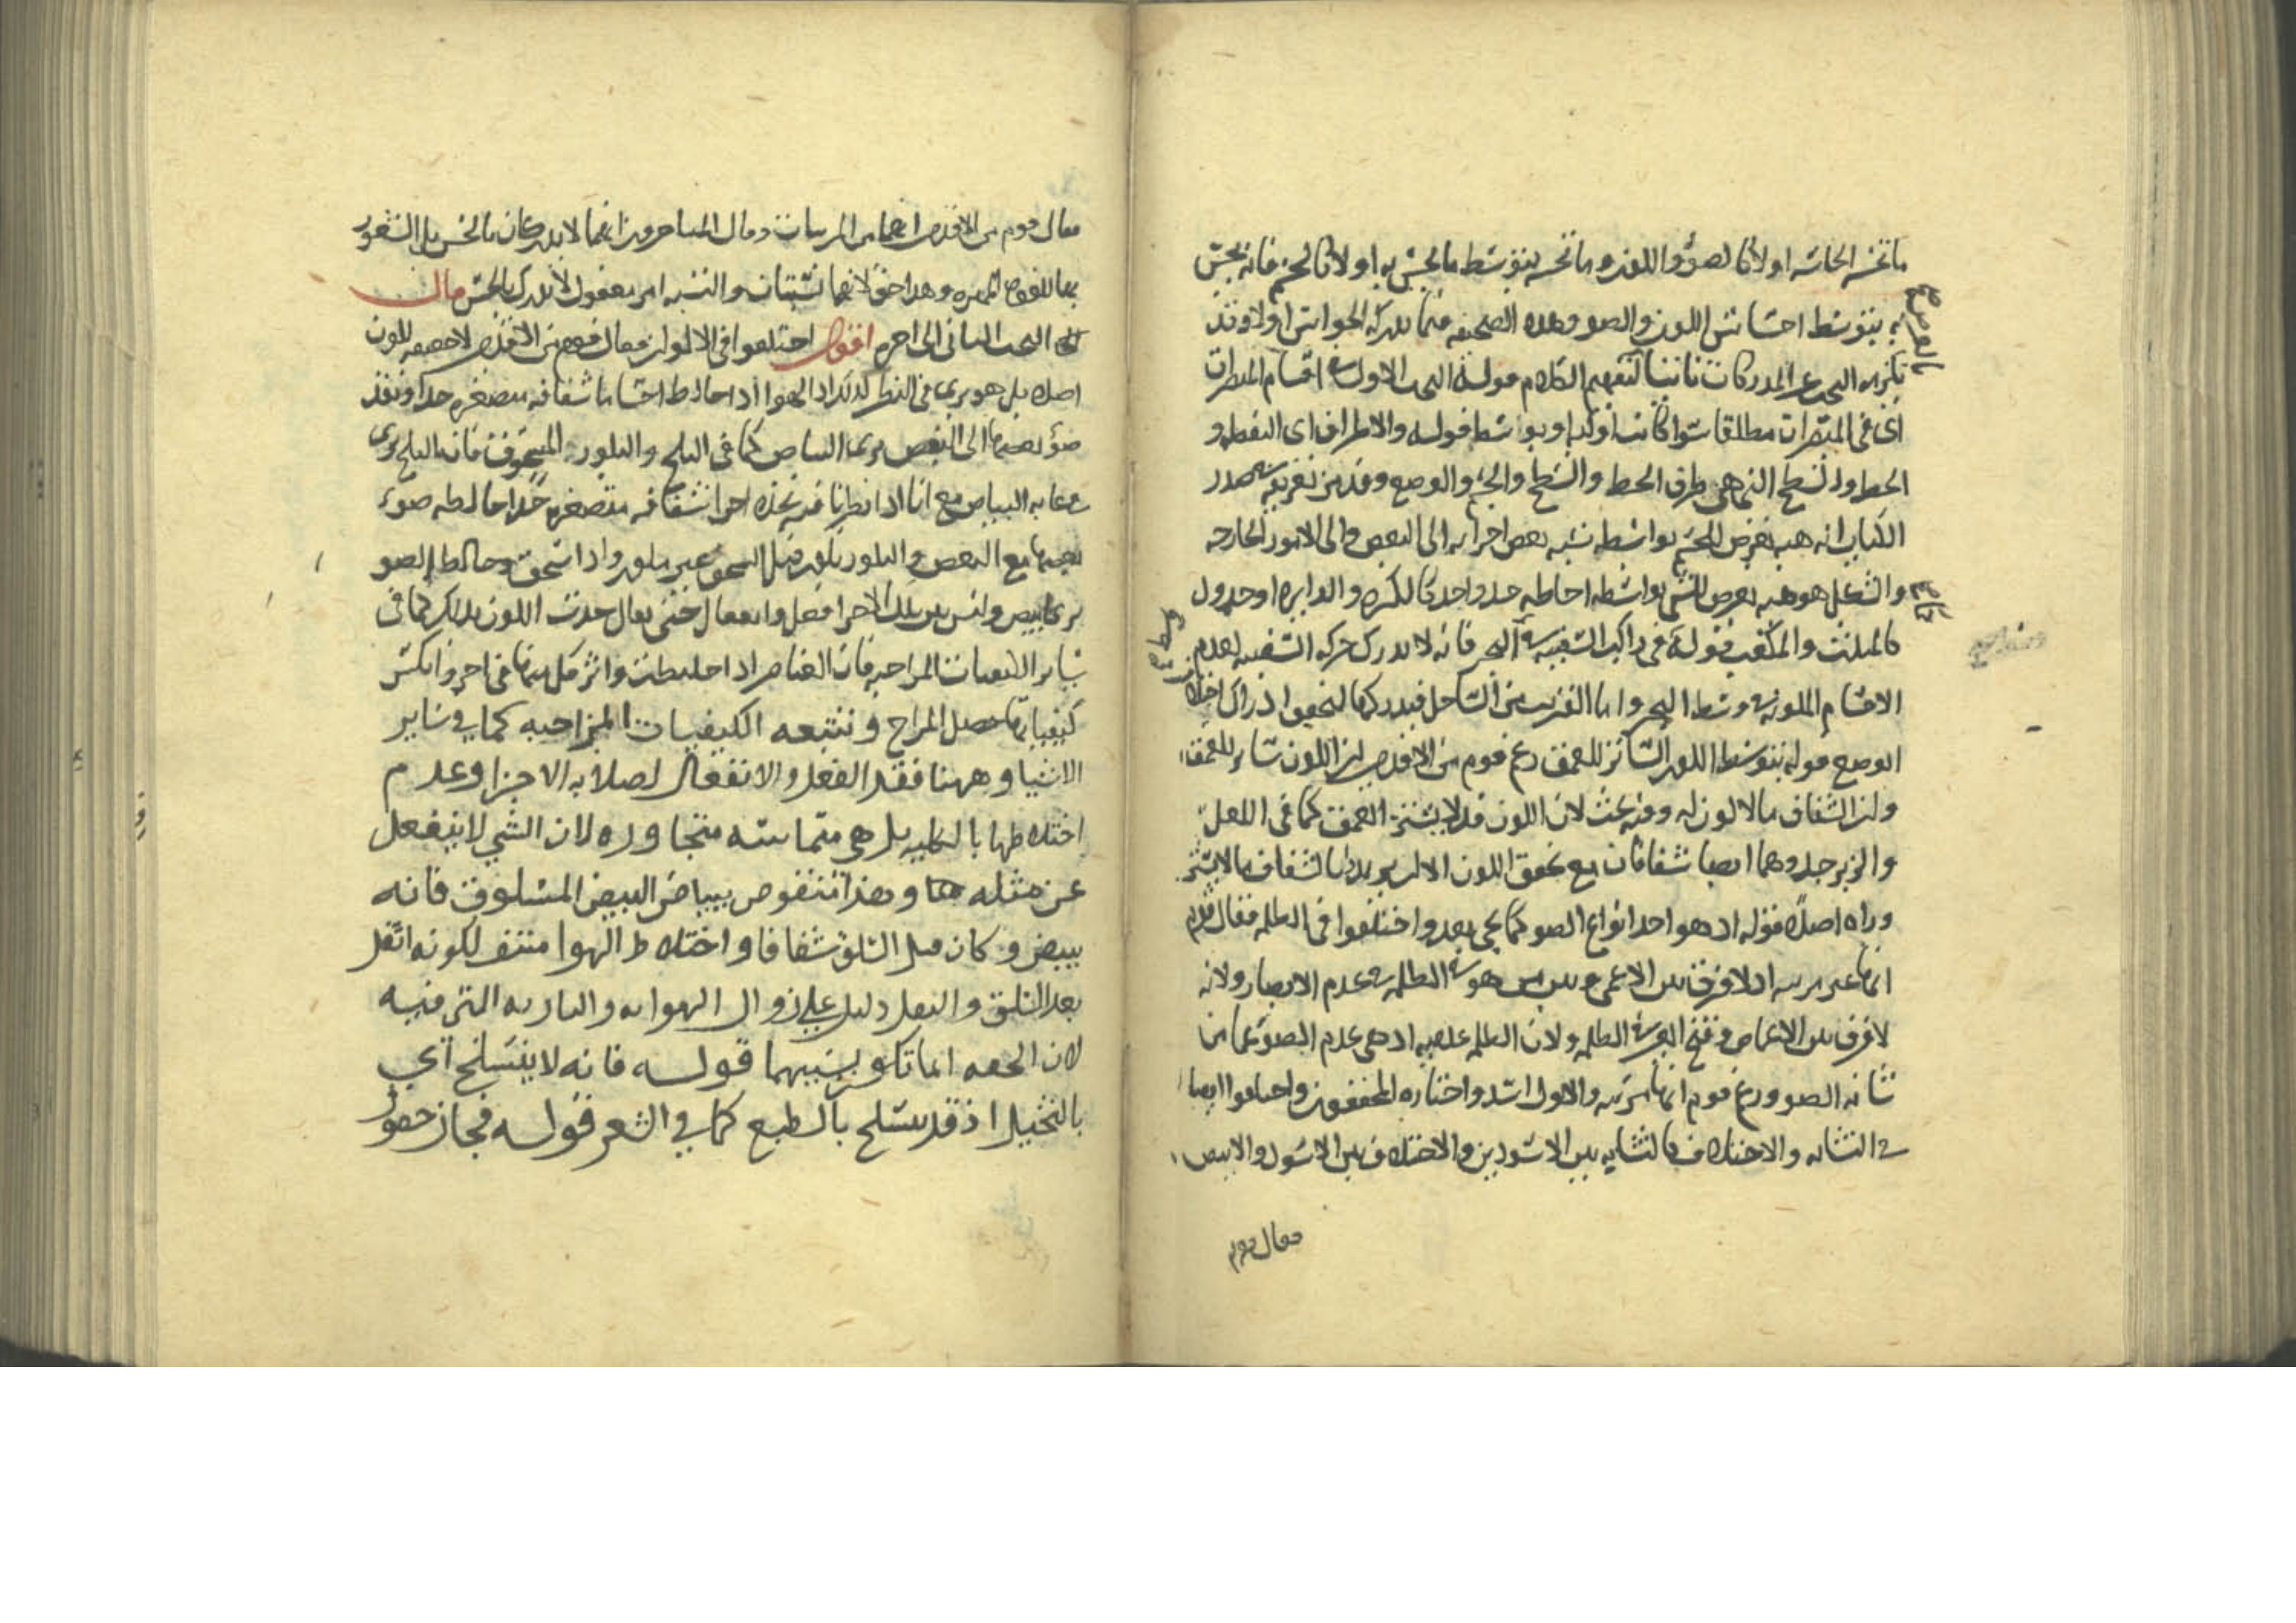 ما تحسه الحاسه اولا كالضوء واللون وما تحسه بتوسط ما يحس به اولا كالجسم فانه يحس
به بتوسط احساس اللون والضو وهذه الصحيفه فيما يدركه الحواس اولا وقد
البحث عن المدركات ثانيا لتفهيم الكلام قوله البحث الاول في اقسام المبصرات
اى في المبصرات مطلقا سوا كانت اولا او بواسطه قوله والاطراف اى النقطه و
الخط والسطح التي هي طرف الخط والسطح والجسم والوضع وقد مر تعريفه في صدر
الكتاب انه هيه تعرض للجسم بواسطه نسبه بعض اجزايه الى البعض والى الامور الخارجه
والشكل هو هيه تعرض للشي بواسطه احاطه حد واحد كالكره والدايره او حدود
كالمثلث والمكعب قوله في راكب السفينه في البحر فانه لا يدرك حركه السفينه لعدم
الاقسام الملونه وسط البحر واما القريب من الساحل فيدركها لتحقق ادراك اختلاف
الوضع قوله بتوسط اللون الساتر للعمق زعم قوم من الاقدمين ان اللون ساتر للعمق
وان الشفاف ما لا لون له وفيه بحث لان اللون قد لا يستر العمق كما في اللعل
والزبرجد وهما ايضا شفافان مع تحقق اللون الا ان يريد بالشفاف ما لا يستر
وراه اصلا قوله اذ هو احد انواع الضو كما يجي بعد واختلفوا في الظلمه فقال قوم
انها غير مريه اذ لا فرق بين الاعمى وبين من هو في الظلمه في عدم الابصار ولانه
لا فرق بين الاغماض وفتح البصر في الظلمه ولان الظلمه عدميه اذ هي عدم الضو عما من
شانه الضو وزعم قوم انها مريه والاول اسد واختاره المحققون واختلفوا ايضا
في التشابه والاختلاف كالتشابه بين الاسودين والاختلاف بين الاسود والابيض
فقال قوم
فقال قوم من الاقدمين انهما من المريات وقال المتاخرون انهما لا يدركان بالحس بل الشعور
بهما للقوه المميزه وهذا حق لانهما نسبتان والنسبه امر معقول لا يدرك بالحس قال
البحث الثانى الى اخره اقول اختلفوا في الالوان فقال قوم من الاقدمين لا حقيقه للون
اصلا بل هو يرى في النظر كذلك اذ الهوا اذا خالط اجساما شفافه متصغره جدا ونفذ
ضؤ بعضها الى البعض يرى البياض كما في الثلج والبلور المسحوق فان الثلج يرى
في غايه البياض مع انا اذا نظرنا فيه نجده اجزا شفافه متصغره جدا خالطه ضوء
بعضها مع البعض والبلور يكون قبل السحق غير ملون واذا سحق وخالطه الضو
يرى ابيض وليس بين تلك الاجزا فعل وانفعال حتى يقال حدث اللون بذلك كما في
ساير الكيفيات المزاجيه فان العناصر اذا اختلطت واثر كل منها في اخر وانكسر
كيفياتها حصل المزاج و تتبعه الكيفيات المزاجيه كما في ساير
الاشيا و ههنا فقد الفعل والانفعال لصلابه الاجزا وعدم
اختلاطها بالكليه بل هي متماسه متجاوره لان الشي لا ينفعل
عن مثله وهذا منقوض ببياض البيض المسلوق فانه
يبيض و كان قبل السلق شفافا و اختلاط الهوا منتف لكونه اثقل
بعد السلق و الثقل دليل على زوال الهوايه والناريه التى فيه
لان الخفه انما تكون بسببهما قوله فانه لا ينسلخ اي
بالتخييل اذ قد ينسلخ بالطبع كما في الشعر قوله فجاز حصول